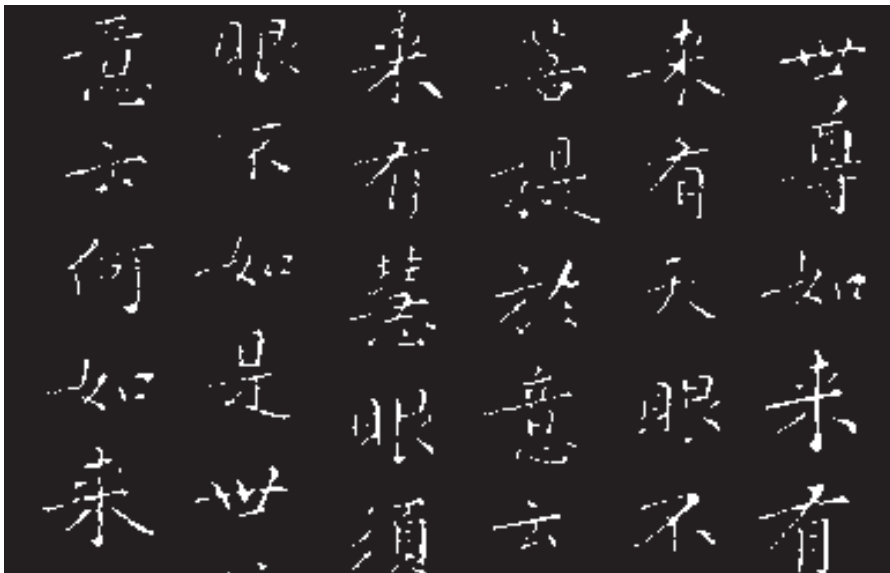 世尊如来有
来有天眼不
菩提於意云
来有慧眼須
眼不如是世
意云何如来